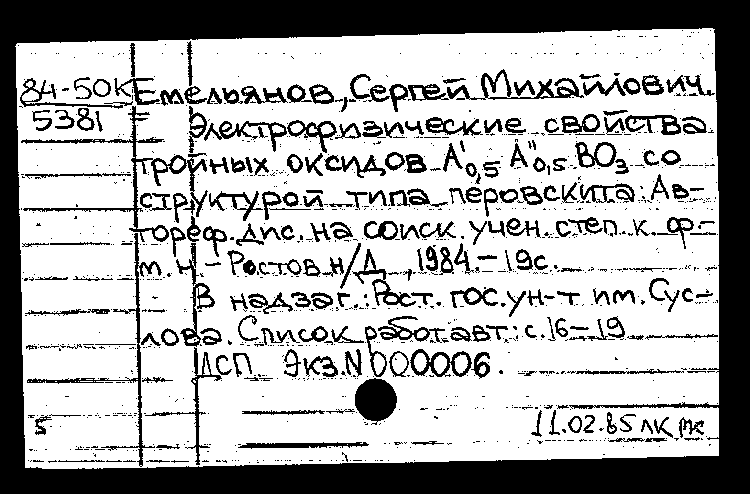 84-50К Емельянов, Сергей Михайлович.
5381 = Электрофизические свойства
тройных оксидов A'0,5 A"0,5 BO3 со
структурой типа перовскита: Ав-
тореф. дис. на соиск. учен. степ. к. ф.-
м. н. - Ростов н/Д, 1984. - 19с.
В надзаг.: Рост. гос. ун-т им. Сус-
лова. Список работ авт: с. 16-19
ДСП Экз. N 000006.
5
11.02.85 ЛК